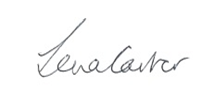 Lena Carter